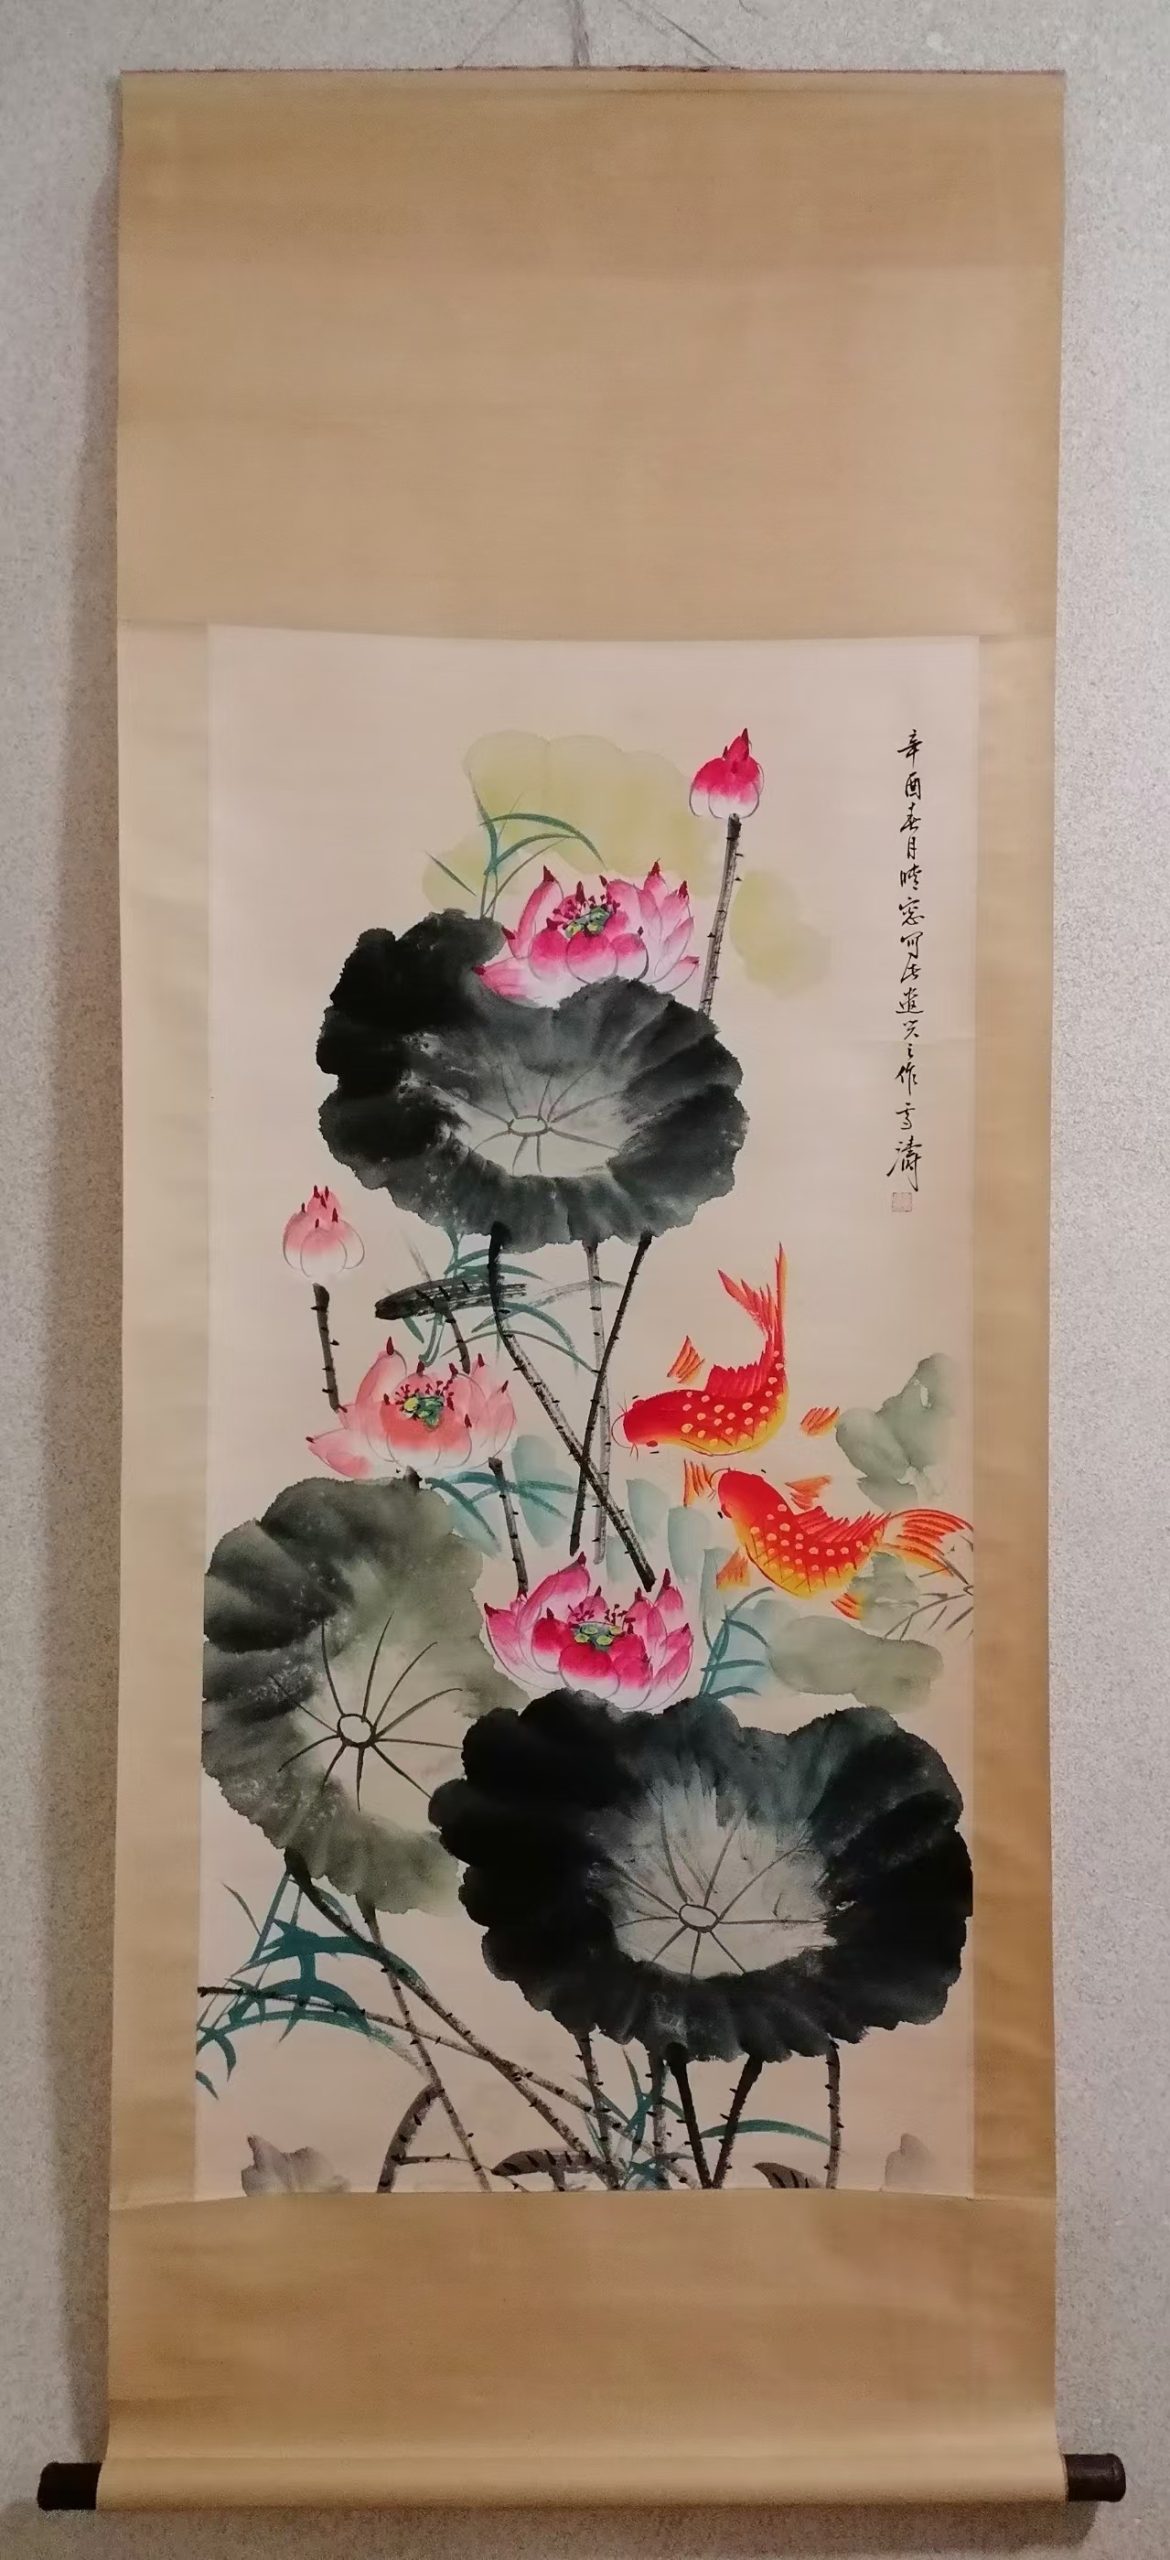 辛酉春月晴窗写此遣兴之作雪涛